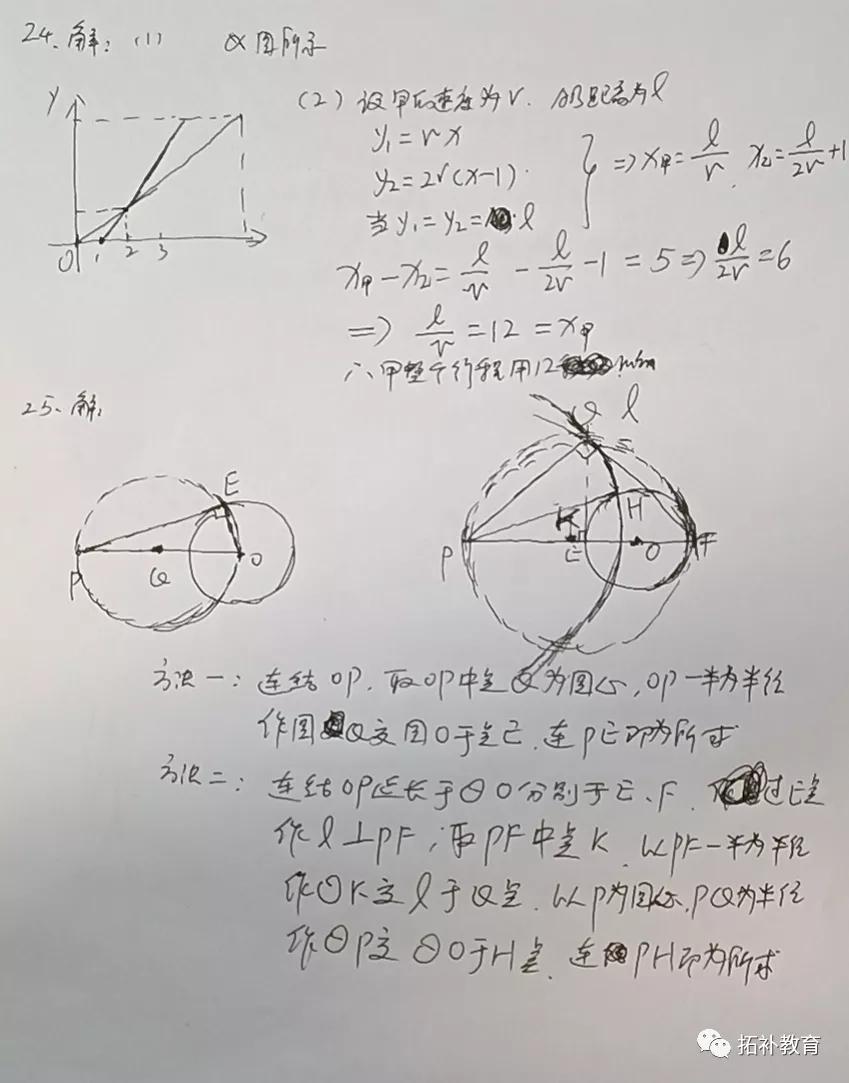 24. 解: (1) 如图所示
(2) 设甲的速度为v. 总距离为l
y
y₁=vx
y₂=2v(x-1)
当y₁=y₂=l
⇒x甲=l/v. x乙=l/2v+1
0 1 2 3
x甲-x乙=l/v-l/2v-1=5⇒l/2v=6
⇒ l/v=12=x甲
∴甲整个行程用12min
25. 解:
E
P Q O
Q l
H
K
P E O F
方法一: 连结OP. 取OP中点Q为圆心, OP一半为半径
作圆Q交圆O于点E. 连PE即为所求
方法二: 连结OP延长于⊙O分别于E、F. 过E点
作l⊥PF, 取PF中点K. 以PF一半为半径
作⊙K交l于Q点. 以P为圆心, PQ为半径
作⊙P交⊙O于H点. 连PH即为所求
拓补教育